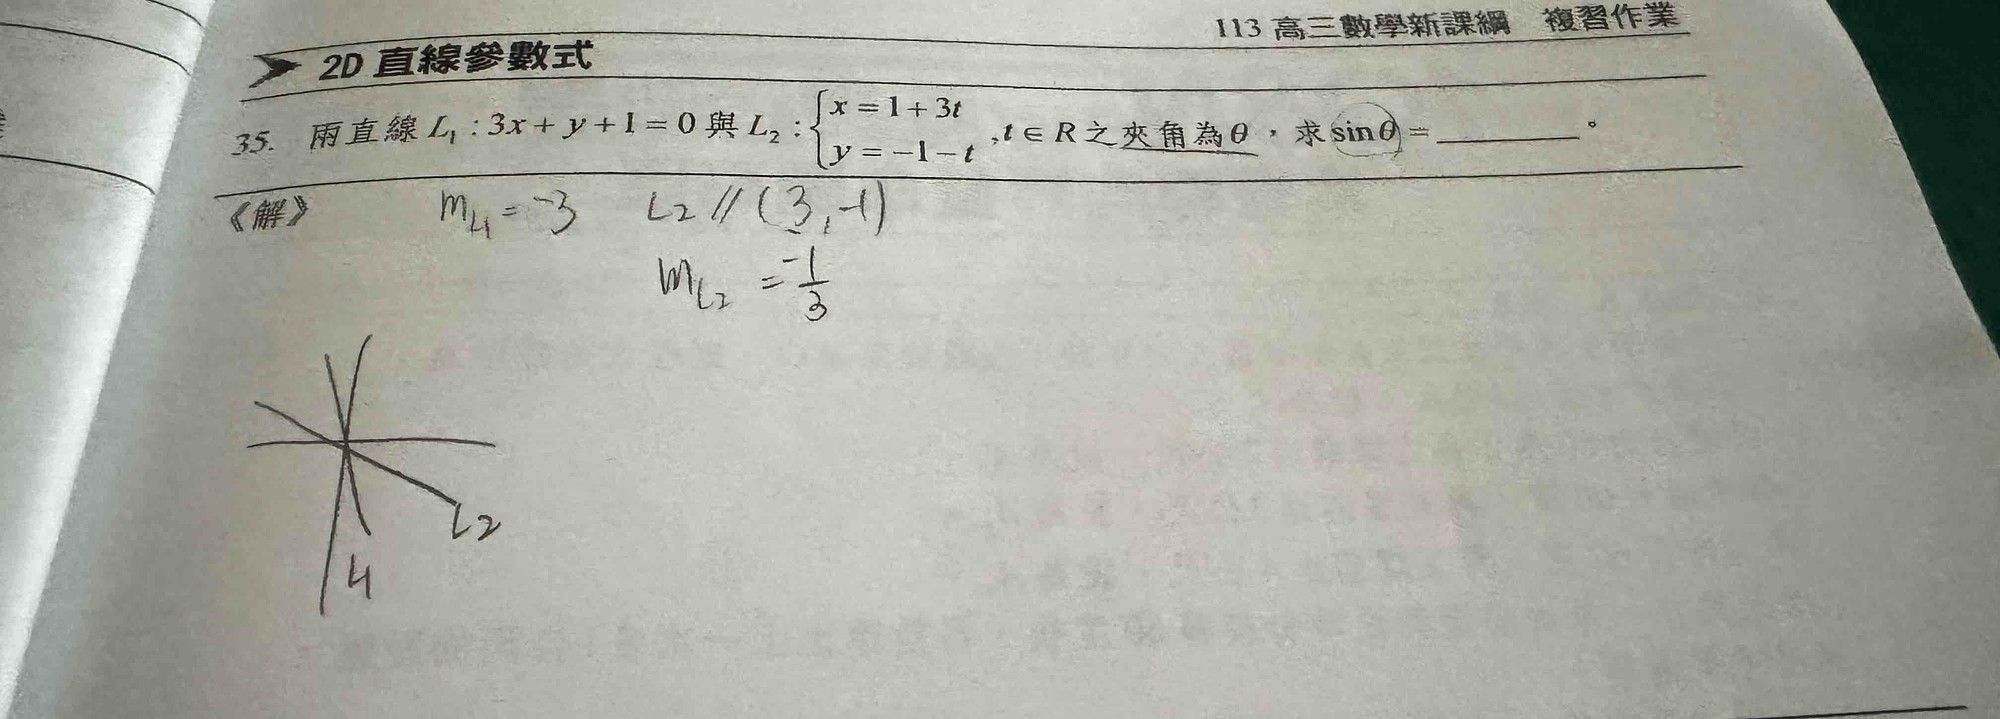 113 高三數學新課綱 複習作業
2D 直線參數式
35. 兩直線 L₁ : 3x + y + 1 = 0 與 L₂ : { x = 1 + 3t
y = −1 − t , t ∈ R 之夾角為 θ，求 sin θ = ________。
《解》 m_L1 = -3 L2 // (3, -1)
m_L2 = -1/3
L2
L1